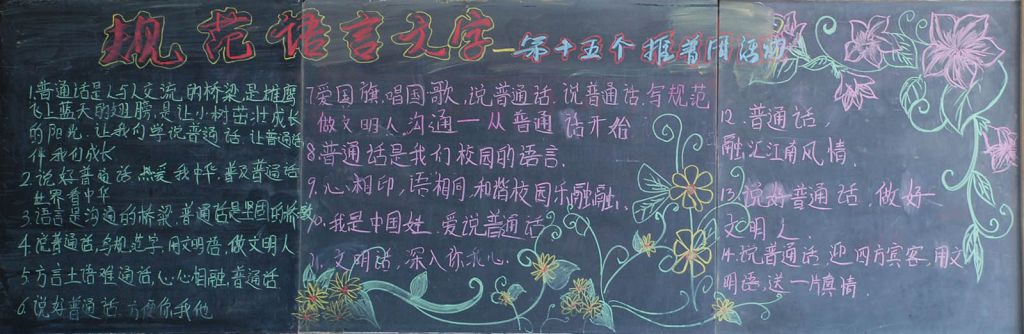 规范语言文字
—第十五个推普周活动
1.普通话是人与人交流的桥梁,是雄鹰
飞上蓝天的翅膀,是让小树茁壮成长
的阳光,让我们学说普通话,让普通话
伴我们成长
2.说好普通话,热爱我中华,普及普通话
世界看中华
3.语言是沟通的桥梁,普通话是
4.说普通话,写规范字,用文明语,做文明人
5.方言土语难通话,心心相融普通话
6.说好普通话,方便你我他
7.爱国旗,唱国歌,说普通话.说普通话,写规范
做文明人,沟通一从普通话开始
8.普通话是我们校园的语言.
9.心相印,语相同,和谐校园乐融融.
10.我是中国娃,爱说普通话
11.文明话,深入你我心.
12.普通话,
融汇江南风情.
13.说好普通话,做好
文明人.
14.说普通话,迎四方宾客,用文
明语,送一片真情.